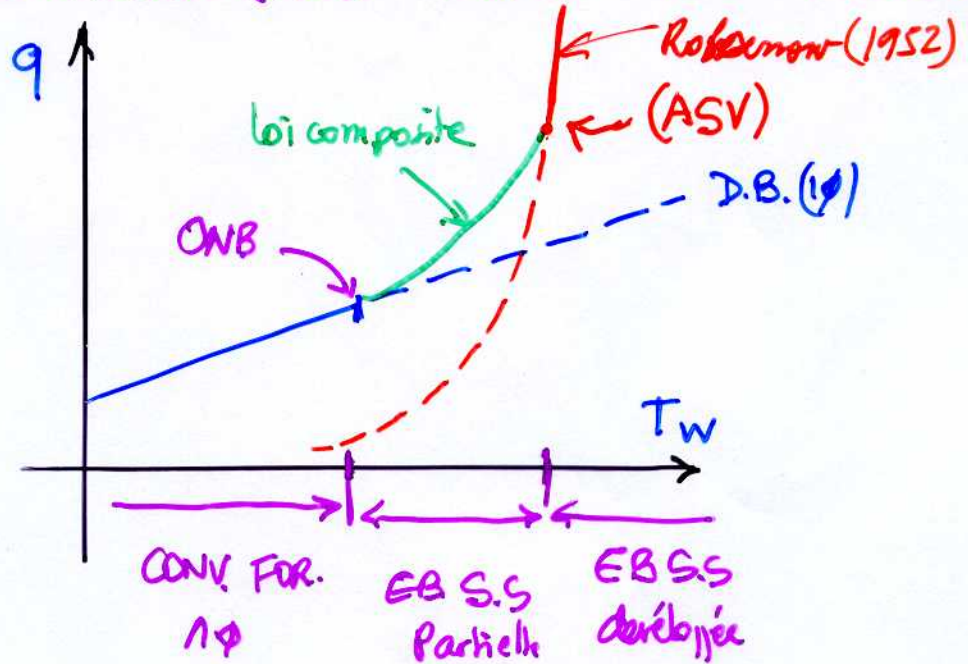 q
Rohsenow (1952)
(ASV)
loi composite
D.B. (1ϕ)
ONB
Tw
CONV. FOR.
1ϕ
EB S.S
Partielle
EB S.S
développée